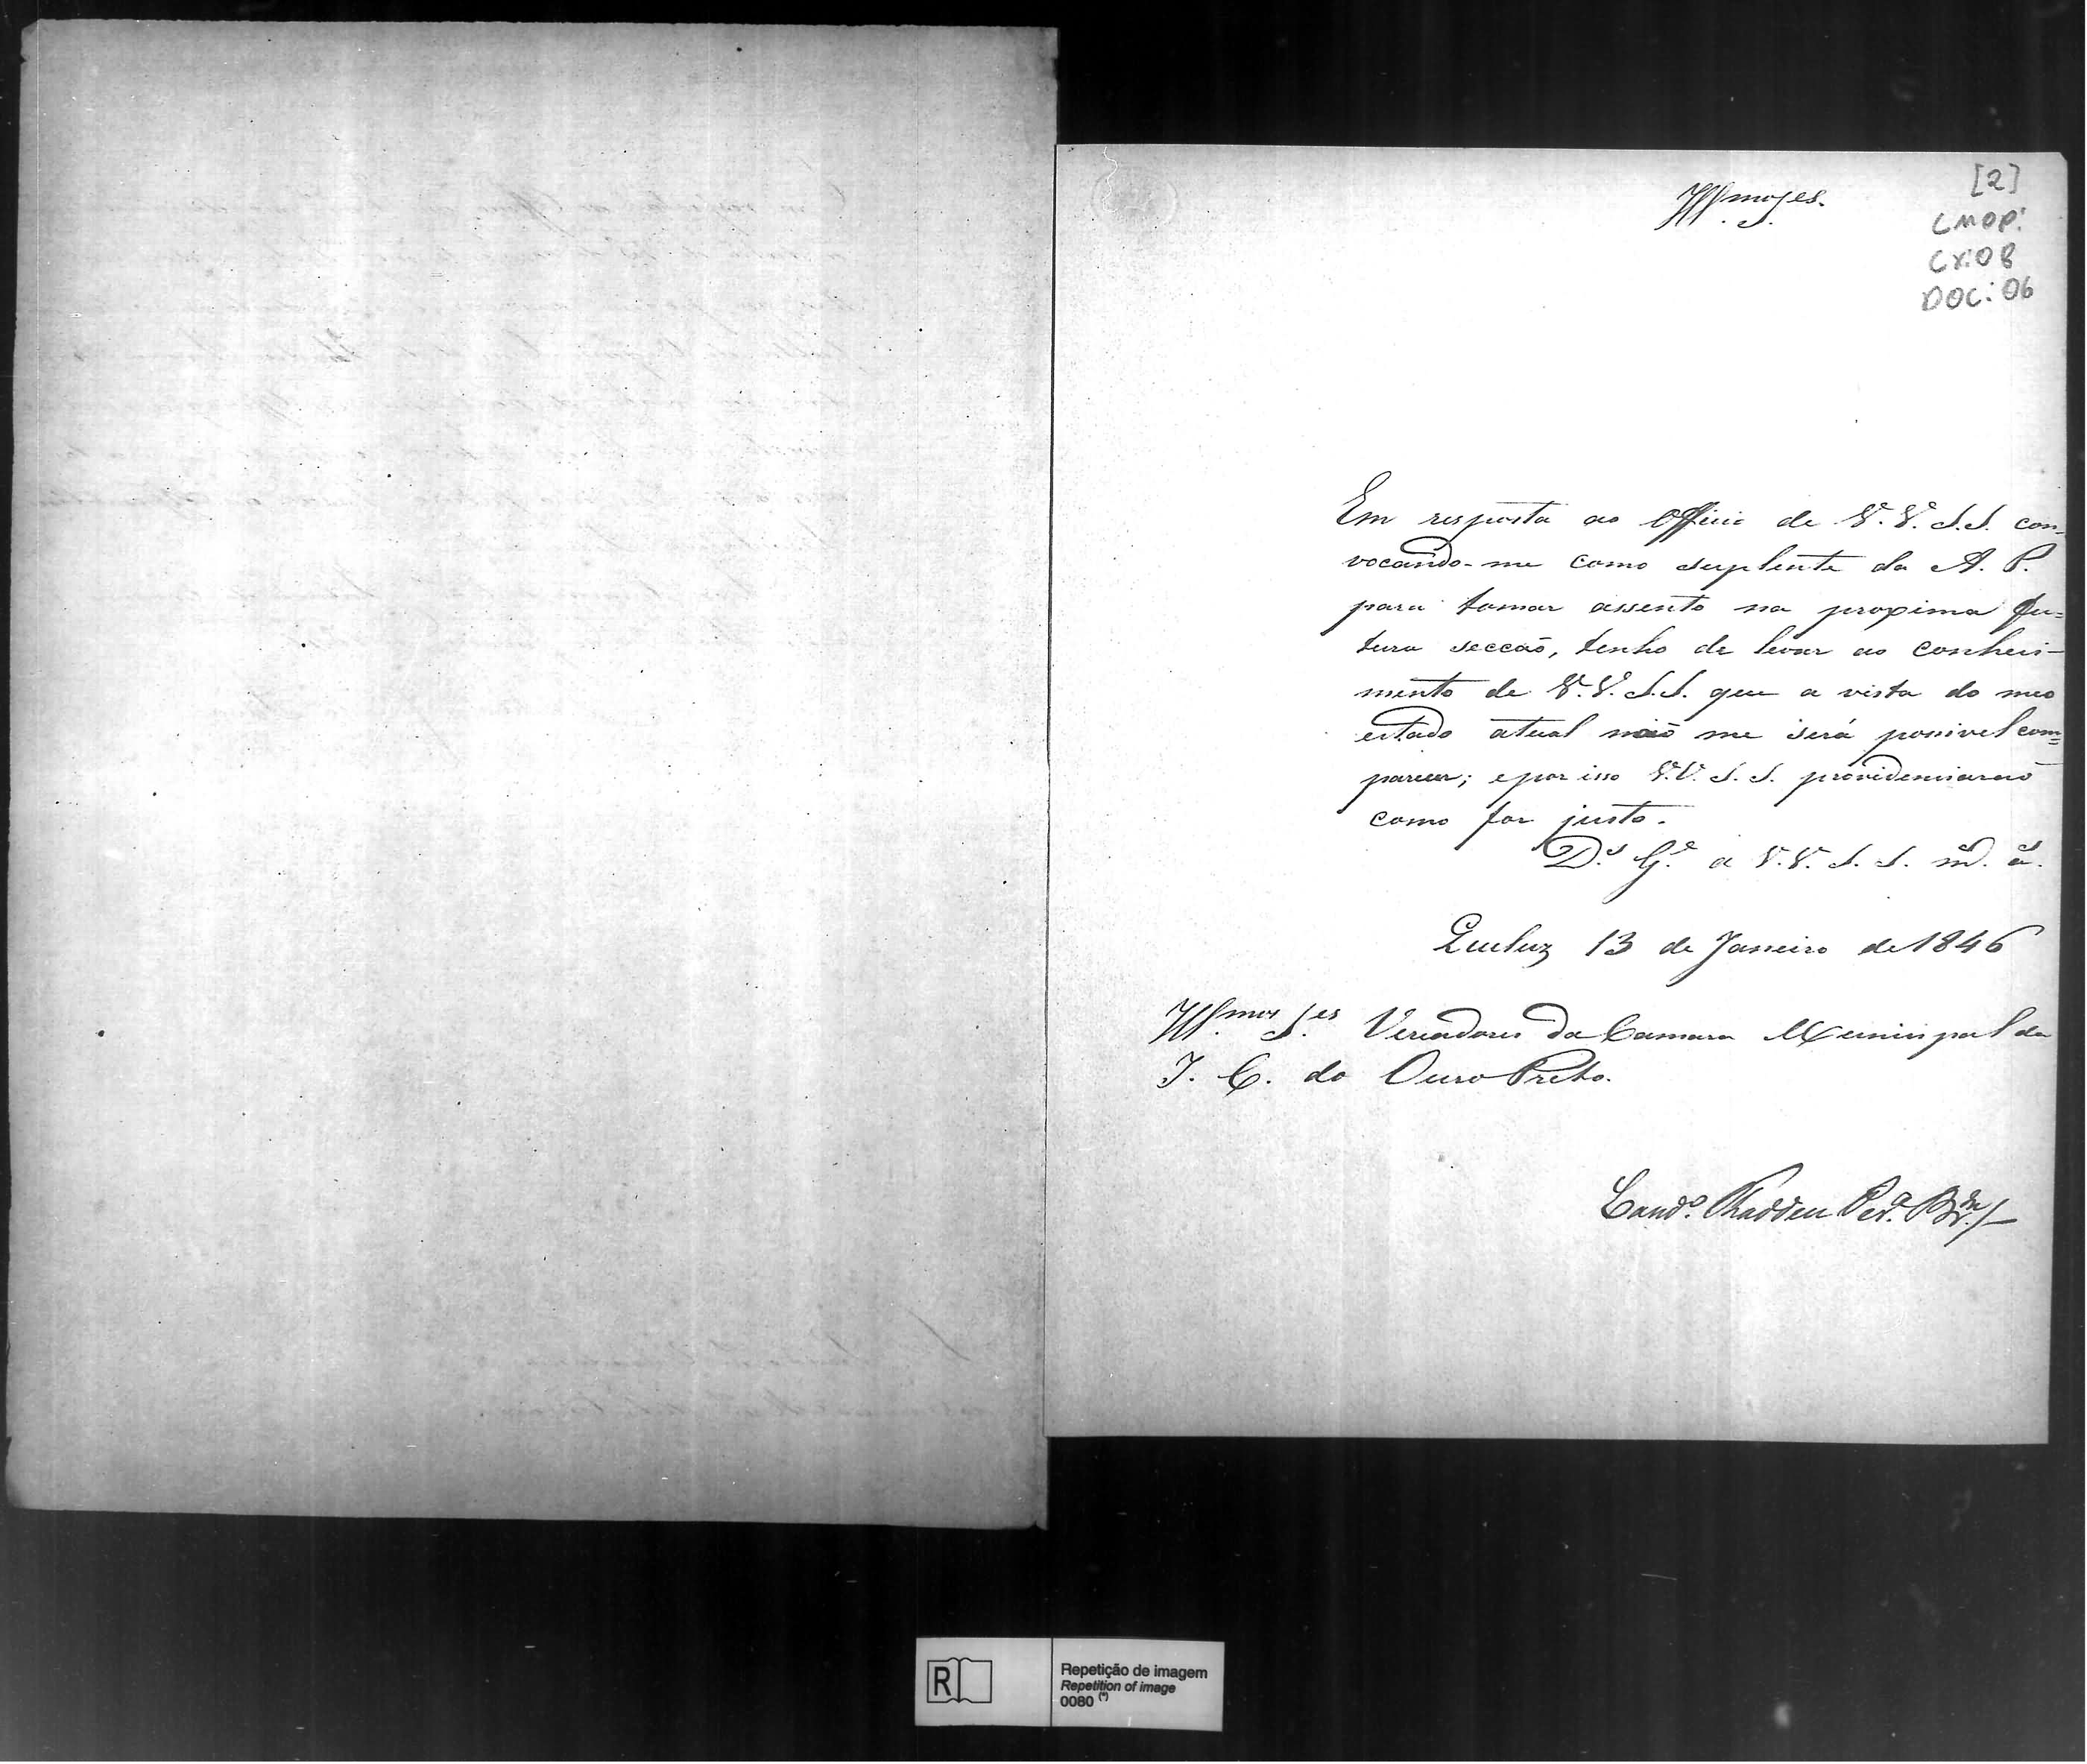 Illmos Ses.
[2]
CMOP:
CX:08
DOC:06
Em resposta ao Officio de V.V. S.S. con-
vocando-me como suplente da A. P.
para tomar assento na proxima fu=
tura secção, tenho de levar ao conheci-
mento de V.V. S.S. que a vista do meo
estado atual não me será possivel com=
parecer; e por isso V.V. S.S. providenciarão
como for justo.
D.s G.e a V.V. S.S. m.s a.s
Queluz 13 de Janeiro de 1846
Illmos Ses Vereadores da Camara Municipal da
I. C. do Ouro Preto.
Cand.o Thaddeu Per.a
R
Repetição de imagem
Repetition of image
0080 (*)